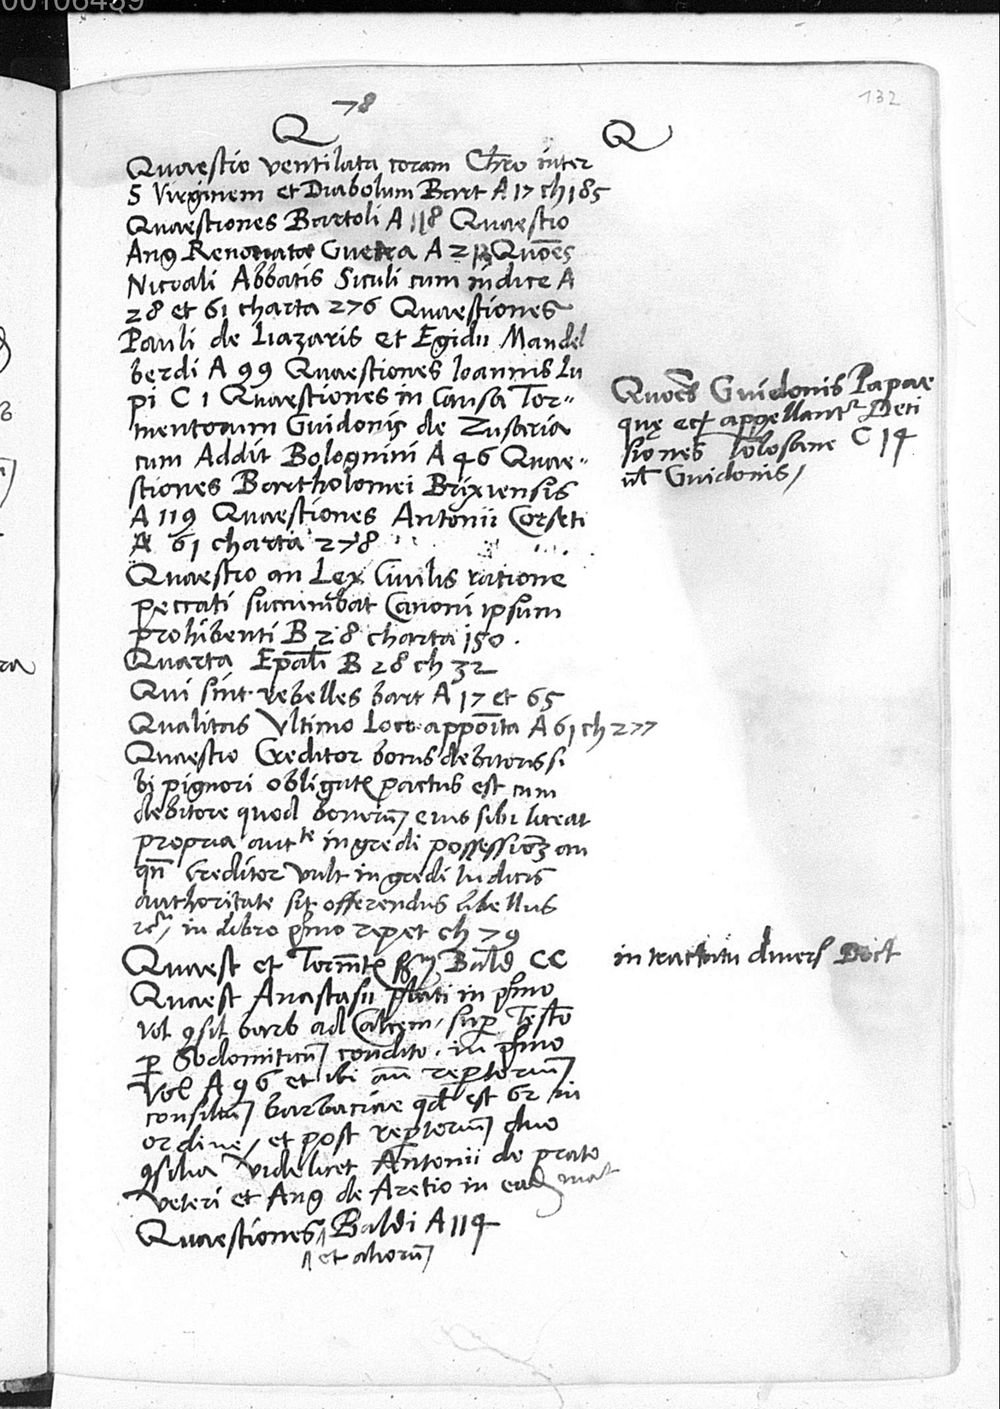 00106439
132
78
Q
Q
Quaestio ventilata coram Chro inter
S Virginem et Diabolum Bart A 17 ch 185
Quaestiones Bartoli A 118 Quaestio
Ang Renovatae Guerra A 213 Quoēs
Nicoali Abbatis Siculi cum indice A
28 et 61 charta 276 Quaestiones
Pauli de Liazaris et Egidii Mandel
berdi A 99 Quaestiones Ioannis Lu
pi C 1 Quaestiones in Causa Tor-
mentorum Guidonis de Zusaria
cum Addit Bolognini A 46 Quae-
stiones Bartholomei Brixiensis
A 119 Quaestiones Antonii Corseti
A 61 charta 278
Quaestio an Lex Civilis ratione
peccati succumbat Canoni ipsum
prohibenti B 28 charta 150.
Quarta Epāli B 28 ch 32
Qui sint rebelles bart A 17 et 65
Qualitas Ultimo Loco appoīta A 61 ch 277
Quaestio Creditor bonis debitoris si
bi pignori obligatꝭ pactus est cum
debitore quod bonorū eius sibi liceat
propria autte ingredi possessionē an
qn̄ Creditor vult ingredi Iudicis
authoritate sit offerendus libellus
in libro p̄mo repet ch 79
Quaest et Torm̄tꝭ Bald CC
Quaest Anastasii in p̄mo
vol ꝯsil barb ad Calcem, sup Testō
p Sodomiticū condito. in p̄mo
Vol A 96 et ibi an̄ reptoriū
consiliū barbaciae qd est 62 in
ordine, et post reptoriū duo
ꝯsilia Videlicet Antonii de prato
veteri et Ang de Aretio in eadē mat
Quaestiones Baldi A 114
et aliorū
Quoēs Guidonis Papae
quę ecꝫ appellantr Deci
siones Tolosane C 14
ul Guidonis,
in tractatu divers Doct